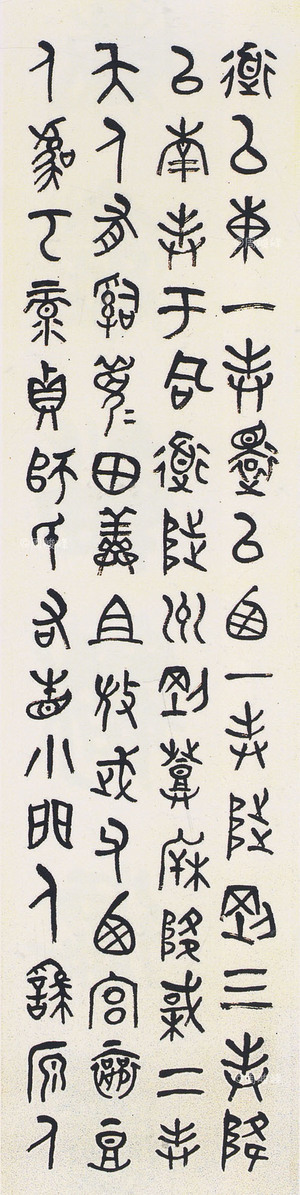 道以東一封還以西一封陟剛三封降
以南封于同道陟州剛登㭊降棫二封
夨人有𤔲眉田鮮且微武父西宮襄豆
人虞丂彔貞師氏右眚小門人譌原人